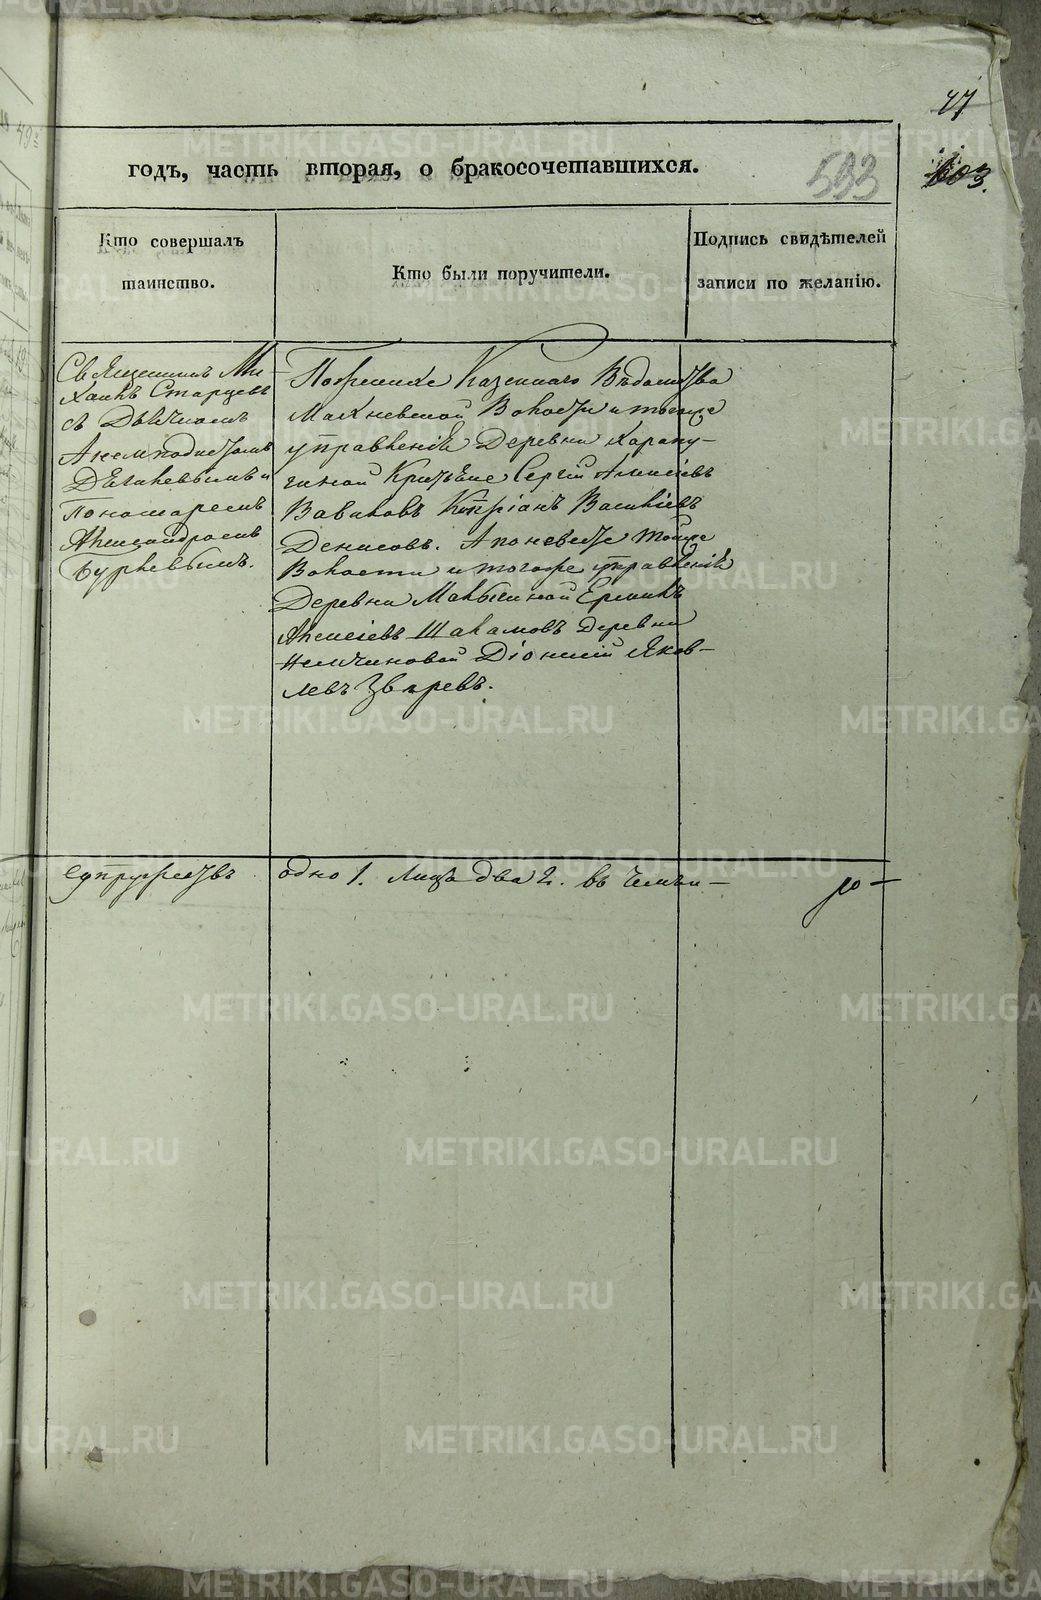 47
годъ, часть вторая, о бракосочетавшихся.
593
603.
Кто совершалъ
таинство.
Кто были поручители.
Подпись свидѣтелей
записи по желанію.
Священникъ Ми-
хаилъ Старцевъ
съ Дьячкомъ
Дягилевымъ и
Пономаремъ
Александромъ
Бурлевымъ.
По женихѣ Казеннаго Вѣдомства
Махневской Волости и тогоже
управленія Деревни Карапу-
гиной Крестьяне Сергій Алексѣевъ
Вавиловъ Кипріанъ Василіевъ
Денисовъ. А по невѣстѣ тойже
Волости и тогоже управленія
Деревни Маклыгиной Ермилъ
Алексіевъ Шаламовъ Деревни
Немчиновой Діонисій Яков-
левъ Звѣревъ.
супружествъ одно 1. лицъ два 2. въ чемъ и —
METRIKI.GASO-URAL.RU